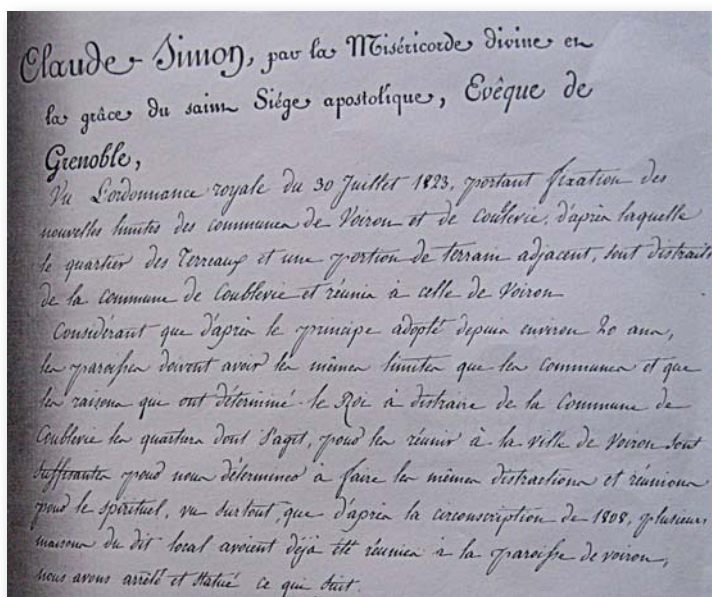 Claude-Simon, par la Miséricorde divine en
la grâce du saint Siége apostolique, Evêque de
Grenoble,
Vu L'ordonnance royale du 30 Juillet 1823, portant fixation des
nouvelles limites des communes de Voiron et de Coublevie, d'après laquelle
le quartier des Terreaux et une portion de terrain adjacent, sont distraits
de la commune de Coublevie et réunis à celle de Voiron
Considérant que d'après le principe adopté depuis environ 20 ans,
les paroisses doivent avoir les mêmes limites que les communes et que
les raisons qui ont déterminé le Roi à distraire de la Commune de
Coublevie les quartiers dont s'agit, pour les réunir à la ville de Voiron sont
suffisantes pour nous déterminer à faire les mêmes distractions et réunions
pour le spirituel, vu surtout, que d'après la circonscription de 1808, plusieurs
maisons du dit local avoient déjà été réunies à la paroisse de voiron,
nous avons arrêté et statué ce qui suit.